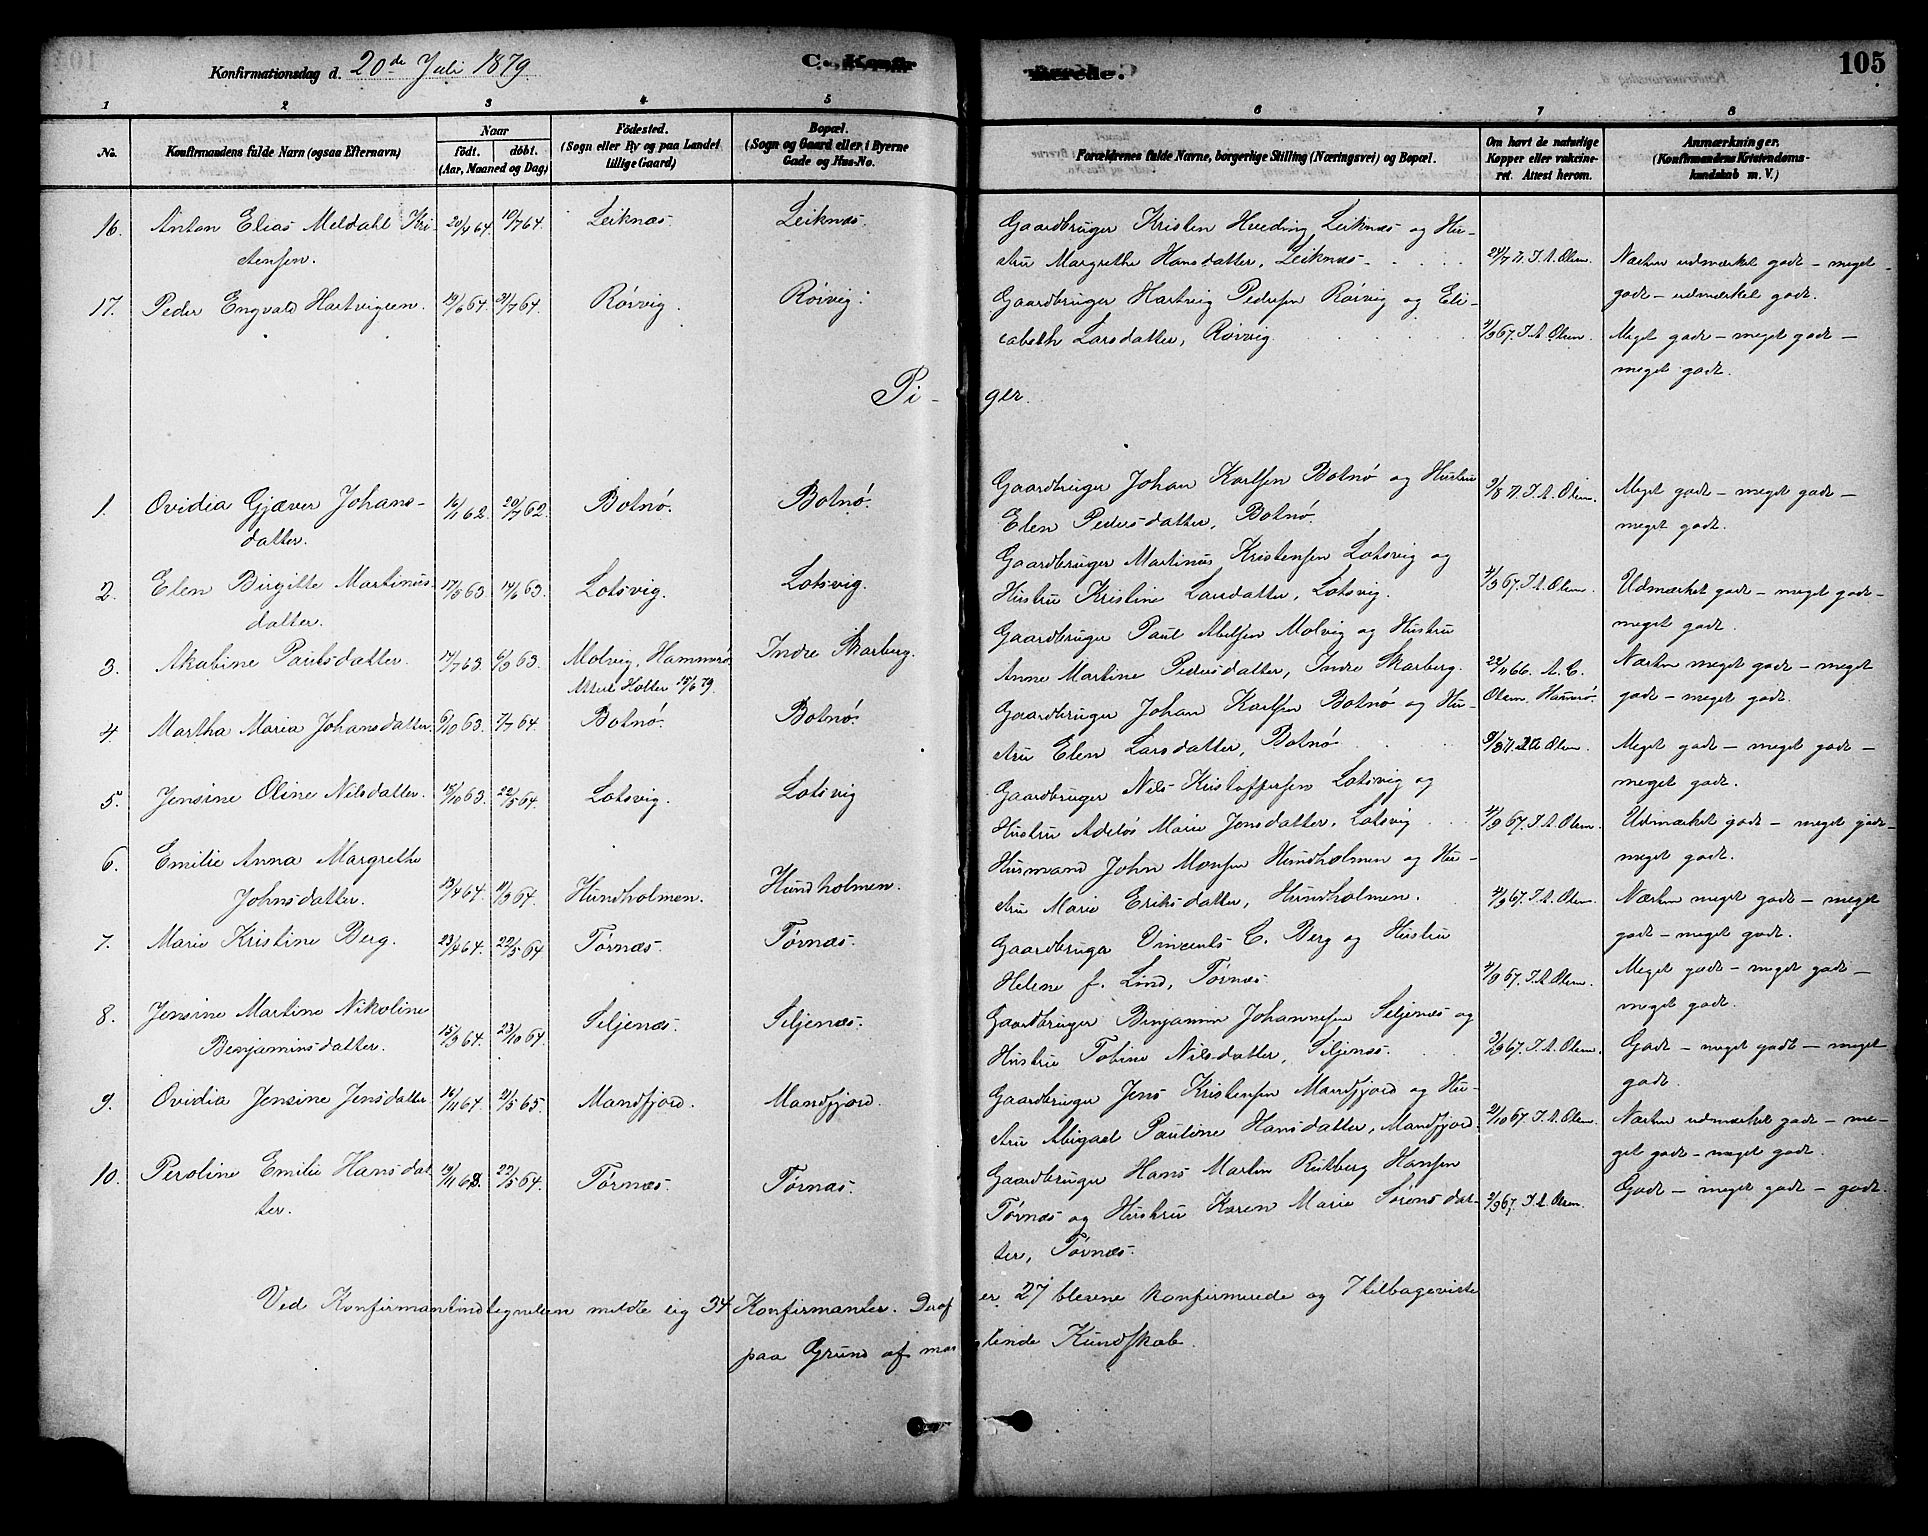 Konfirmationsdag d. 20de Juli 1879
C. Konfirmerede.
105
1 2 3 4 5 6 7 8
No.
Konfirmandens fulde Navn (ogsaa Efternavn)
Naar
födt. döbt.
(Aar, Maaned og Dag)
Födested.
(Sogn eller By og paa Landet
tillige Gaard)
Bopæl.
(Sogn og Gaard eller i Byerne
Gade og Hus-No.
Forældrenes fulde Navne, borgerlige Stilling (Næringsvei) og Bopæl.
Om havt de naturlige
Kopper eller vakcine-
ret. Attest herom.
Anmærkninger.
(Konfirmandens Kristendoms-
kundskab m. V.)
16. Anton Elias Meldahl Kri- 20/4 64. 10/7 64. Leiknæs. Leiknæs. Gaardbruger Kristen Hveding Leiknæs og Hu-
stensen. stru Margrethe Hansdatter, Leiknæs. 24/7 71. J. A. Olsen. Næsten udmærket godt – meget
godt – udmærket godt.
17. Peder Engvald Hartvigsen. 19/6 64. 31/7 64. Rörvig. Rörvig. Gaardbruger Hartvig Pedersen Rörvig og Eli-
sabeth Larsdatter, Rörvig. 4/9 67. J. A. Olsen. Meget godt – meget godt –
meget godt.
Piger.
1. Ovidia Gjæver Johans- 16/1 62. 20/7 62. Botnö. Botnö. Gaardbruger Johan Karlsen Botnö og Hustru
datter. Elen Pedersdatter, Botnö. 9/8 71. J. A. Olsen. Meget godt – meget godt –
meget godt.
2. Elen Birgitte Martinus- 17/5 63. 14/6 63. Lotsvig. Lotsvig. Gaardbruger Martinus Kristensen Lotsvig og
datter. Hustru Kristine Larsdatter, Lotsvig. 4/9 67. J. A. Olsen. Udmærket godt – meget godt –
meget godt.
3. Akatine Paulsdatter. 14/7 63. 6/9 63. Molvig, Hammerö Indre Skarberg. Gaardbruger Paul Abelsen Molvig og Hustru
Attest Holter 15/6 79. Anne Martine Pedersdatter, Indre Skarberg. 22/11 66. A. C. Næsten meget godt – meget
Olsen. Hamerö. godt – meget godt.
4. Martha Maria Johansdatter. 6/10 63. 7/7 64. Botnö. Botnö. Gaardbruger Johan Karlsen Botnö og Hu-
stru Elen Larsdatter, Botnö. Olsen. Meget godt – meget godt –
meget godt.
5. Jensine Oline Nilsdatter. 18/10 63. 22/5 64. Lotsvig. Lotsvig Gaardbruger Nils Kristoffersen Lotsvig og
Hustru Adelös Marie Jonsdatter, Lotsvig 4/9 67. J. A. Olsen. Udmærket godt – meget godt –
meget godt.
6. Emilie Anna Margrethe Husmand John Monsen Hundholmen og Hu-
Johnsdatter. 19/4 64. 11/9 64. Hundholmen. Hundholmen. stru Marie Eriksdatter, Hundholmen. 4/9 67. J. A. Olsen. Næsten meget godt – meget
godt – meget godt.
7. Marie Kristine Berg. 23/4 64. 22/5 64 Törnæs. Törnæs. Gaardbruger Vincents C. Berg og Hustru
Helene f. Lind, Törnæs. 4/9 67. J. A. Olsen. Meget godt – meget godt –
meget godt.
8. Jensine Martine Nikoline Gaardbruger Benjamin Johannesen Siljenæs og
Benjaminsdatter. 15/9 64. 23/10 64. Siljenæs. Siljenæs. Hustru Tobine Nilsdatter, Siljenæs. 3/9 67. J. A. Olsen. Godt – meget godt – meget
godt.
9. Ovidia Jensine Jensdatter 16/11 64. 21/5 65. Mandfjord. Mandfjord. Gaardbruger Jens Kristensen Mandfjord og Hu-
stru Abigael Pauline Hansdatter, Mandfjord. 2/10 67. J. A. Olsen. Næsten udmærket godt – me-
get godt – meget godt.
10. Peroline Emilie Hansdat- 19/11 63. 22/5 64. Törnæs. Törnæs. Gaardbruger Hans Martin Rutberg Hansen
ter. Törnæs og Hustru Karen Marie Sörensdat- 3/9 67. J. A. Olsen. Godt – meget godt – godt.
ter, Törnæs.
Ved Konfirmantindtegnelsen meldte sig 34 Konfirmanter. Deraf er 27 blevne konfirmerede og 7 tilbageviste
paa Grund af manglende Kundskab.